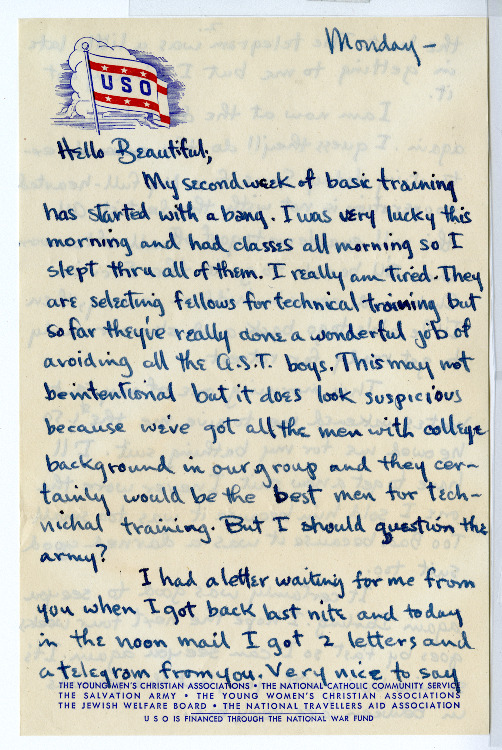 Monday –
USO
Hello Beautiful,
My second week of basic training
has started with a bang. I was very lucky this
morning and had classes all morning so I
slept thru all of them. I really am tired. They
are selecting fellows for technical training but
so far they've really done a wonderful job of
avoiding all the A.S.T. boys. This may not
be intentional but it does look suspicious
because we've got all the men with college
background in our group and they cer-
tainly would be the best men for tech-
nichal training. But I should question the
army?
I had a letter waiting for me from
you when I got back last nite and today
in the noon mail I got 2 letters and
a telegram from you. Very nice to say
THE YOUNG MEN'S CHRISTIAN ASSOCIATIONS • THE NATIONAL CATHOLIC COMMUNITY SERVICE
THE SALVATION ARMY • THE YOUNG WOMEN'S CHRISTIAN ASSOCIATIONS
THE JEWISH WELFARE BOARD • THE NATIONAL TRAVELLERS AID ASSOCIATION
USO IS FINANCED THROUGH THE NATIONAL WAR FUND